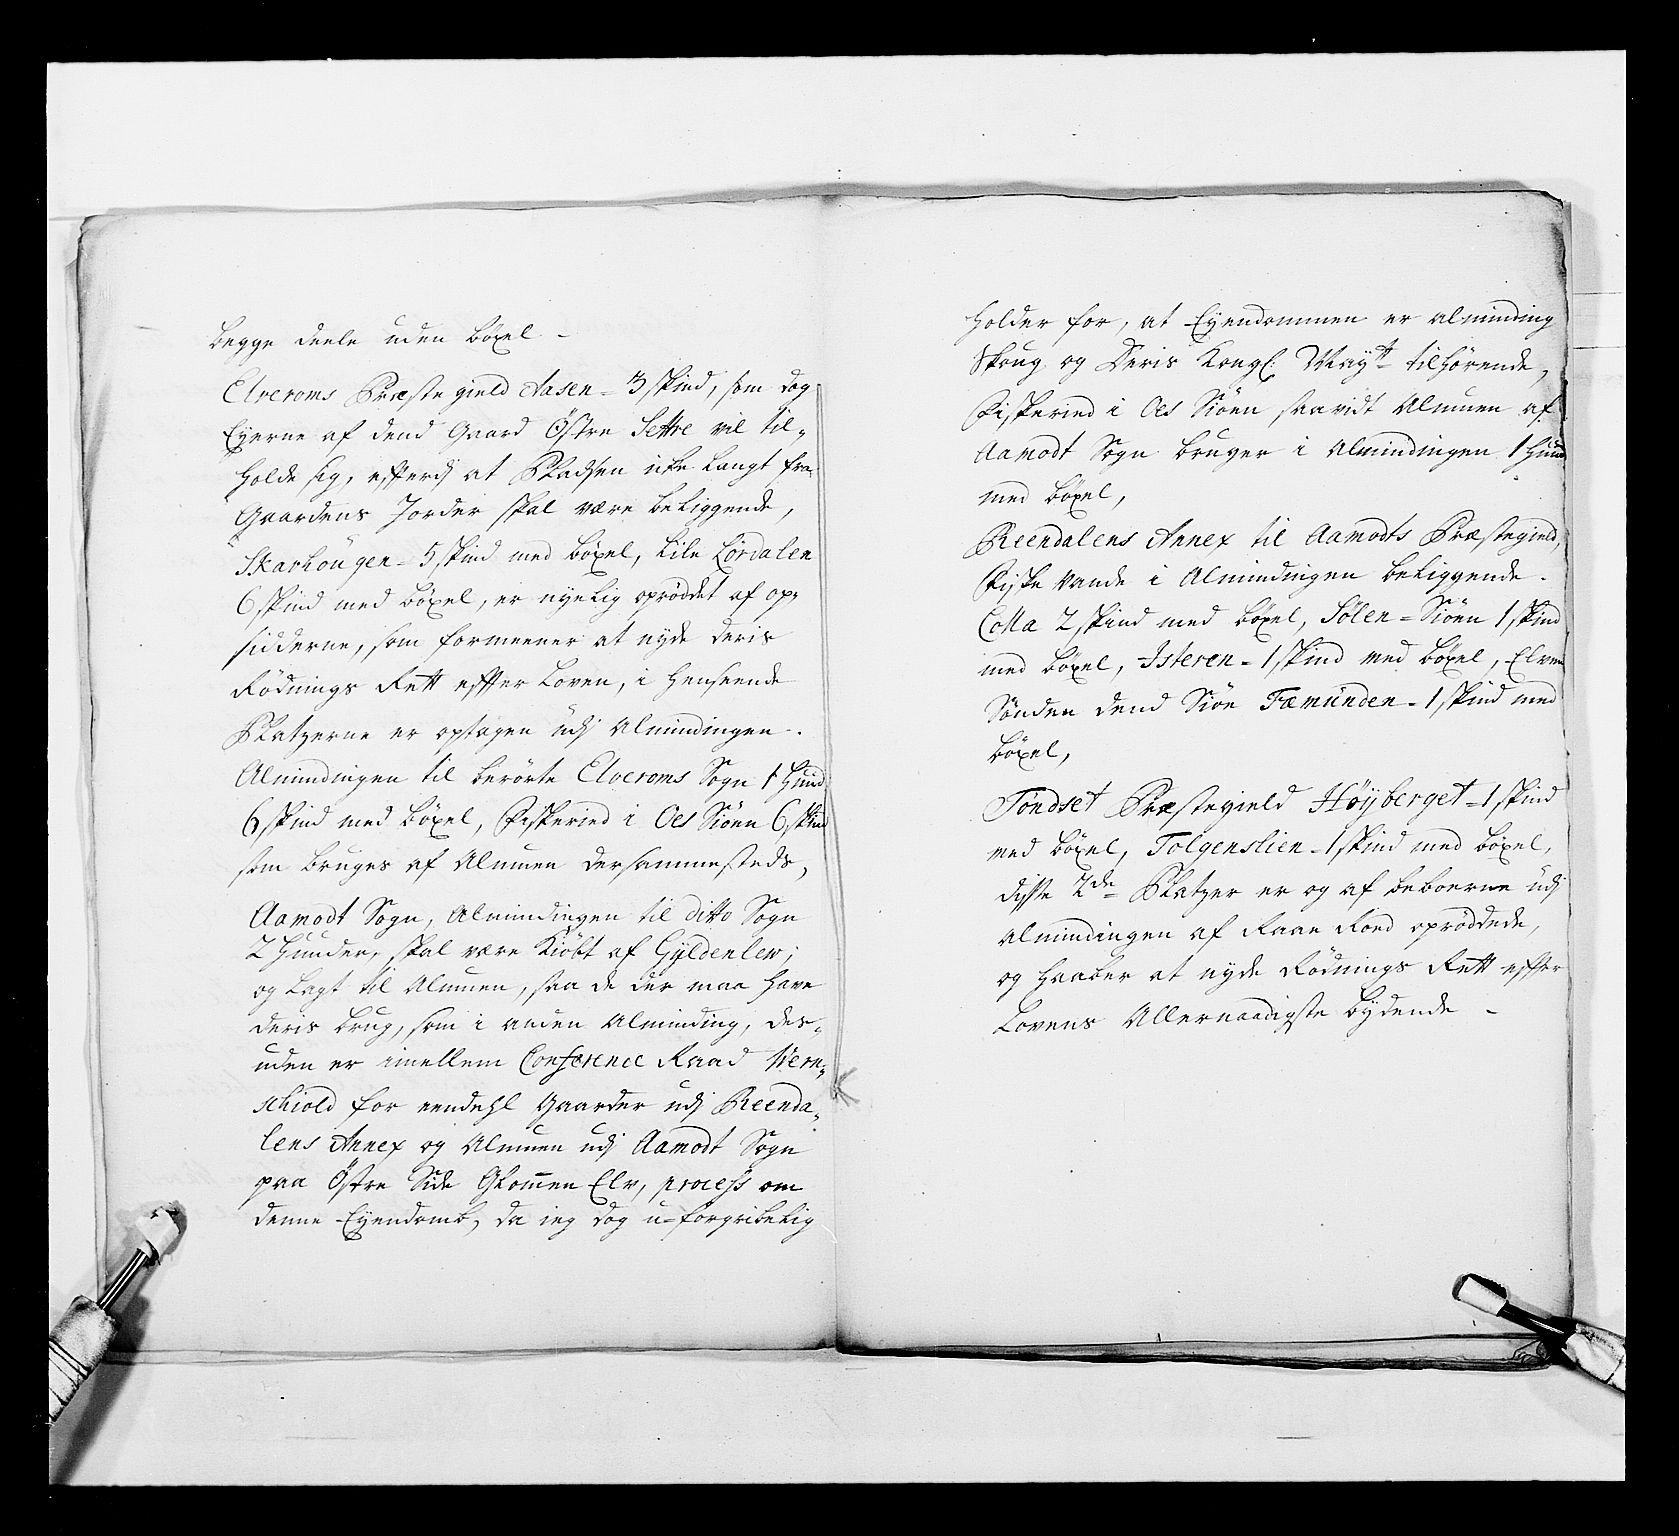 begge deele uden böxel -
Elveroms Præste gield Aasen = 3 spind, som dog
Eyerne af dend Gaard Östre Settre vil til,,
holde sig, efterdj at Pladsen icke langt fra
Gaardens Jorder skal være beliggende,
Skarhougen = 5 spind med böxel, Lile Lördalen
6 spind med böxel, er nyelig opröddet af op,,
sidderne, som formeener at nyde deris
Rödnings Rett effter Loven, i henseende
Platzerne er optagen udj Almindingen.
Almindingen til berörte Elveroms Sogn 1 Huud
6 spind med böxel, Fiskeried i Oes Siöen 6 spind
som bruges af Almuen dersammesteds,
Aamodt Sogn, Almindingen til ditto Sogn
2 Huuder, skal være kiöbt af Gyldenlew;
og lagt til Almuen, saa de der maa have
deris brug, som i anden Alminding, des,,
uden er imellem Conference Raad Wern,,
schiold for eendehl Gaarder udj Reenda,,
lens Annex og Almuen udj Aamodt Sogn
paa Östre Side Glom̅en Elv, process om
denne Eyendomb, da ieg dog u=forgribelig
holder for, at Eyendommen er alminding
Skoug og Deris Kongl: Mayᵗᵗ tilhørende,
Fiskeried i Oes Siöen saavidt Almuen af
Aamodt Sogn bruger i Almindingen 1 Huud
med böxel,
Reendalens Annex til Aamodts Præstegield,
Fiske Vande i Almindingen beliggende.
2 spind med böxel, Sölen = Siöen 1 spind
med böxel, Isteren = 1 spind med böxel, Elven
Sönden dend Siöe Fæmunden = 1 spind med
böxel,
Töndset Præstegield Høyberget = 1 spind
med böxel, Tolgenslien = 1 spind med böxel,
disse 2de Platzer er og af beboerne udj
Almindingen af Raae Roed opröddede,
og haaber at nyde Rödnings Rett effter
Lovens Allernaadigste bydende -